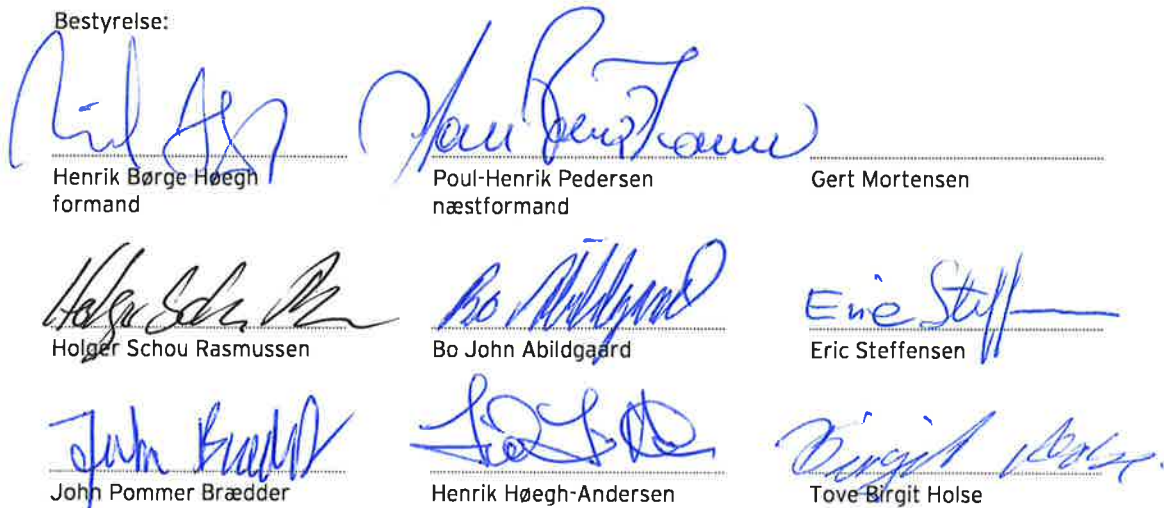 Bestyrelse:
Henrik Børge Høegh
formand
Poul-Henrik Pedersen
næstformand
Gert Mortensen
Holger Schou Rasmussen
Bo John Abildgaard
Eric Steffensen
John Pommer Brædder
Henrik Høegh-Andersen
Tove Birgit Holse